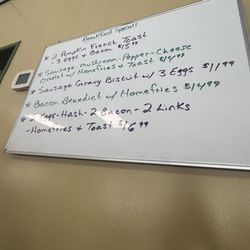 Breakfast Specials
* 2 Pumpkin French Toast
3 eggs & Bacon $15⁹⁹
* Sausage mushroom-Pepper-Cheese
Omelet w/ Homefries & Toast $14⁹⁹
* Sausage Gravy Biscuit w/ 3 Eggs $11⁹⁹
* Bacon Benedict w/ Homefries $14⁹⁹
* 2 Eggs-Hash-2 Bacon-2 Links
-Homefries & Toast $16⁹⁹